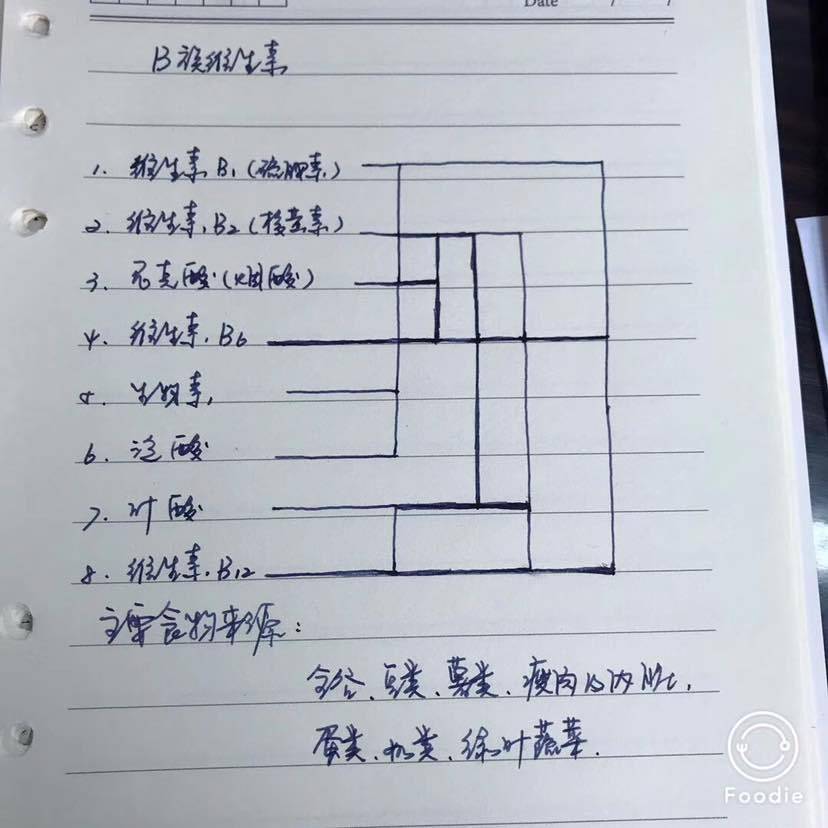 Date / /
B族维生素
1. 维生素B1(硫胺素)
2. 维生素B2(核黄素)
3. 尼克酸(烟酸)
4. 维生素B6
5. 生物素
6. 泛酸
7. 叶酸
8. 维生素B12
主要食物来源:
全谷、豆类、薯类、瘦肉及内脏、
蛋类、奶类、绿叶蔬菜.
Foodie